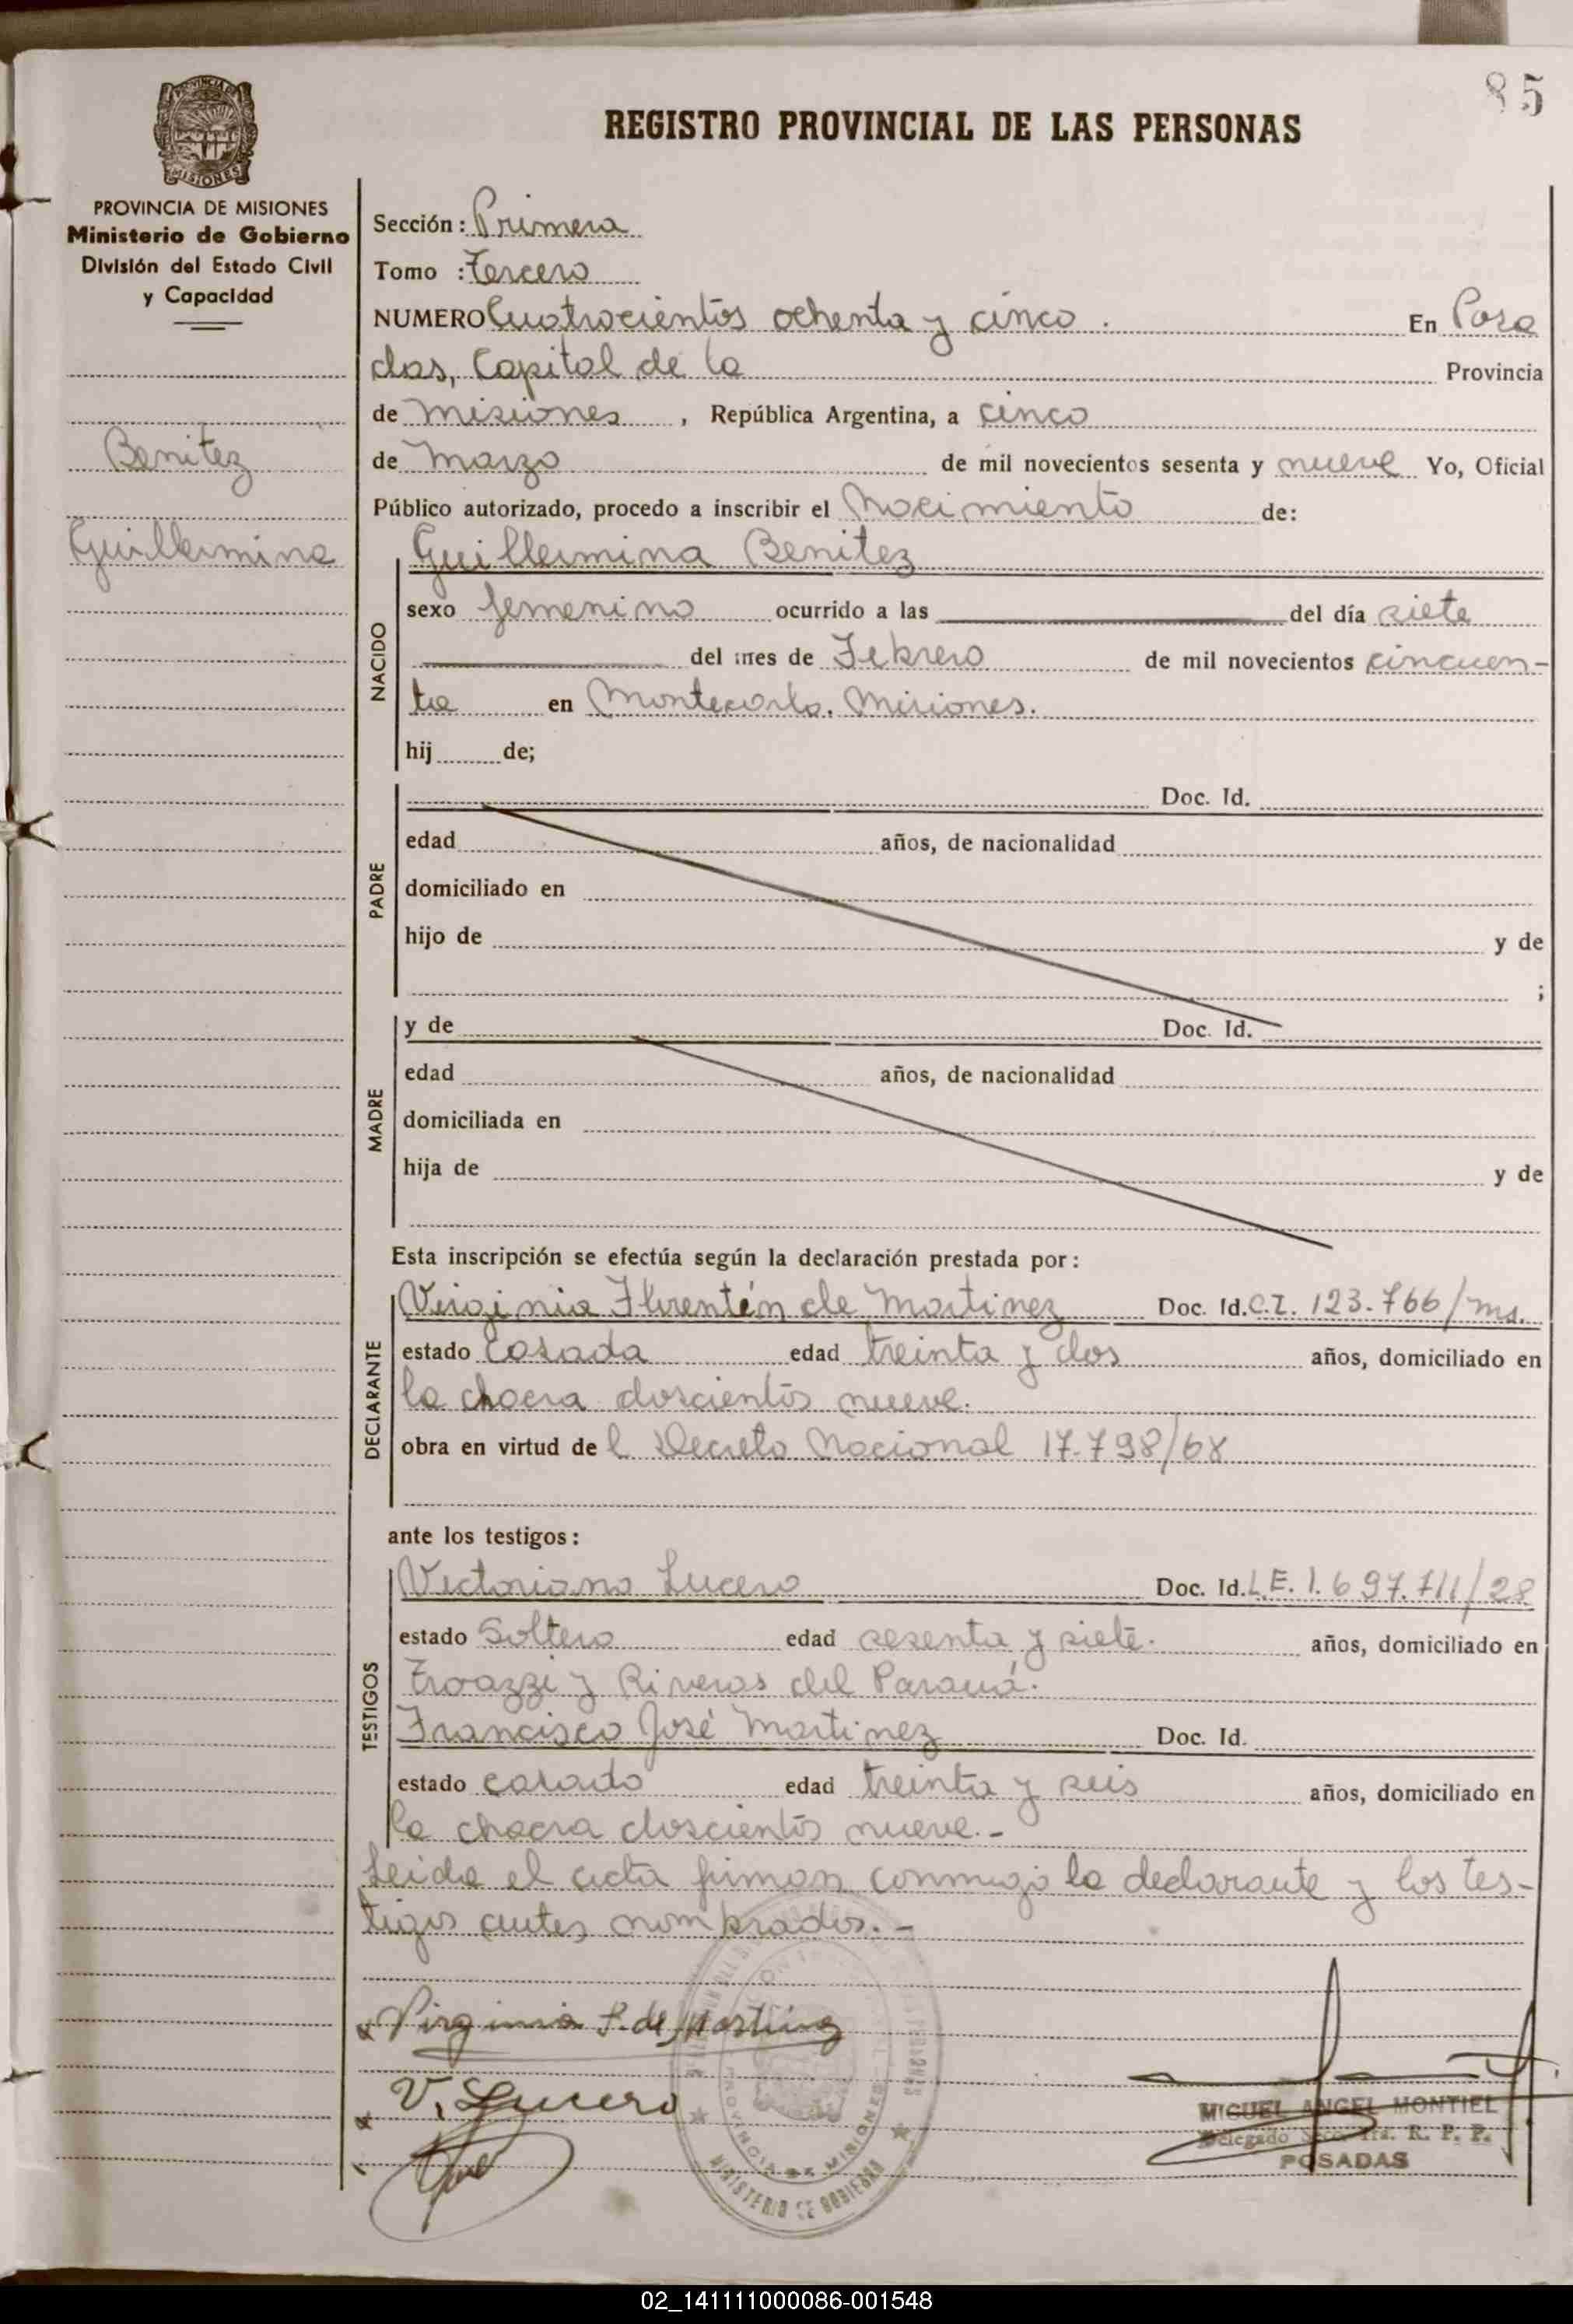 85
REGISTRO PROVINCIAL DE LAS PERSONAS
PROVINCIA DE MISIONES
Ministerio de Gobierno
División del Estado Civil
y Capacidad
Benitez
Guillermina
Sección: Primera
Tomo : Tercero
NUMERO Cuatrocientos ochenta y cinco. En Posa
das, Capital de la Provincia
de Misiones, República Argentina, a cinco
de Marzo de mil novecientos sesenta y nueve Yo, Oficial
Público autorizado, procedo a inscribir el Nacimiento de:
NACIDO
Guillermina Benitez
sexo femenino ocurrido a las del día siete
del mes de Febrero de mil novecientos cincuen-
ta en Montecarlo. Misiones.
hij de;
PADRE
Doc. Id.
edad años, de nacionalidad
domiciliado en
hijo de y de
;
MADRE
y de Doc. Id.
edad años, de nacionalidad
domiciliada en
hija de y de
Esta inscripción se efectúa según la declaración prestada por:
DECLARANTE
Virginia Florentín de Martinez Doc. Id. C.I. 123.766/Ms.
estado Casada edad treinta y dos años, domiciliado en
la chacra doscientos nueve.
obra en virtud del Decreto Nacional 17.798/68
ante los testigos:
TESTIGOS
Victoriano Lucero Doc. Id. L.E. 1.697.711/28
estado Soltero edad sesenta y siete. años, domiciliado en
y Riveras del Paraná.
Francisco José Martinez Doc. Id.
estado casado edad treinta y seis años, domiciliado en
la chacra doscientos nueve.-
Leida el acta firman conmigo la declarante y los tes-
tigos antes nombrados.-
Virginia F. de Martinez
V. Lucero
MIGUEL ANGEL MONTIEL
Delegado R. P. P.
POSADAS
PROVINCIA DE MISIONES
MINISTERIO DE GOBIERNO
02_141111000086-001548